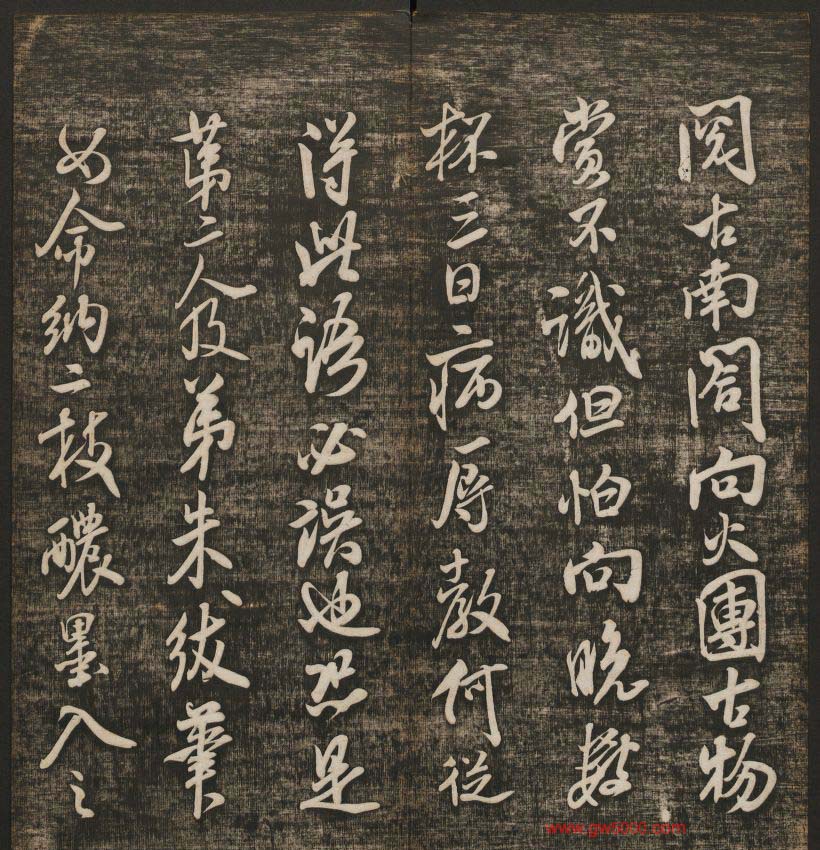 閱古南閣向火團古物
賞不識但怕向晚數
杯三日病辱教何從
得此語必誤也恐是
苐二人及弟朱紱筆
如命納二枝醲墨入之
www.gw5005.com